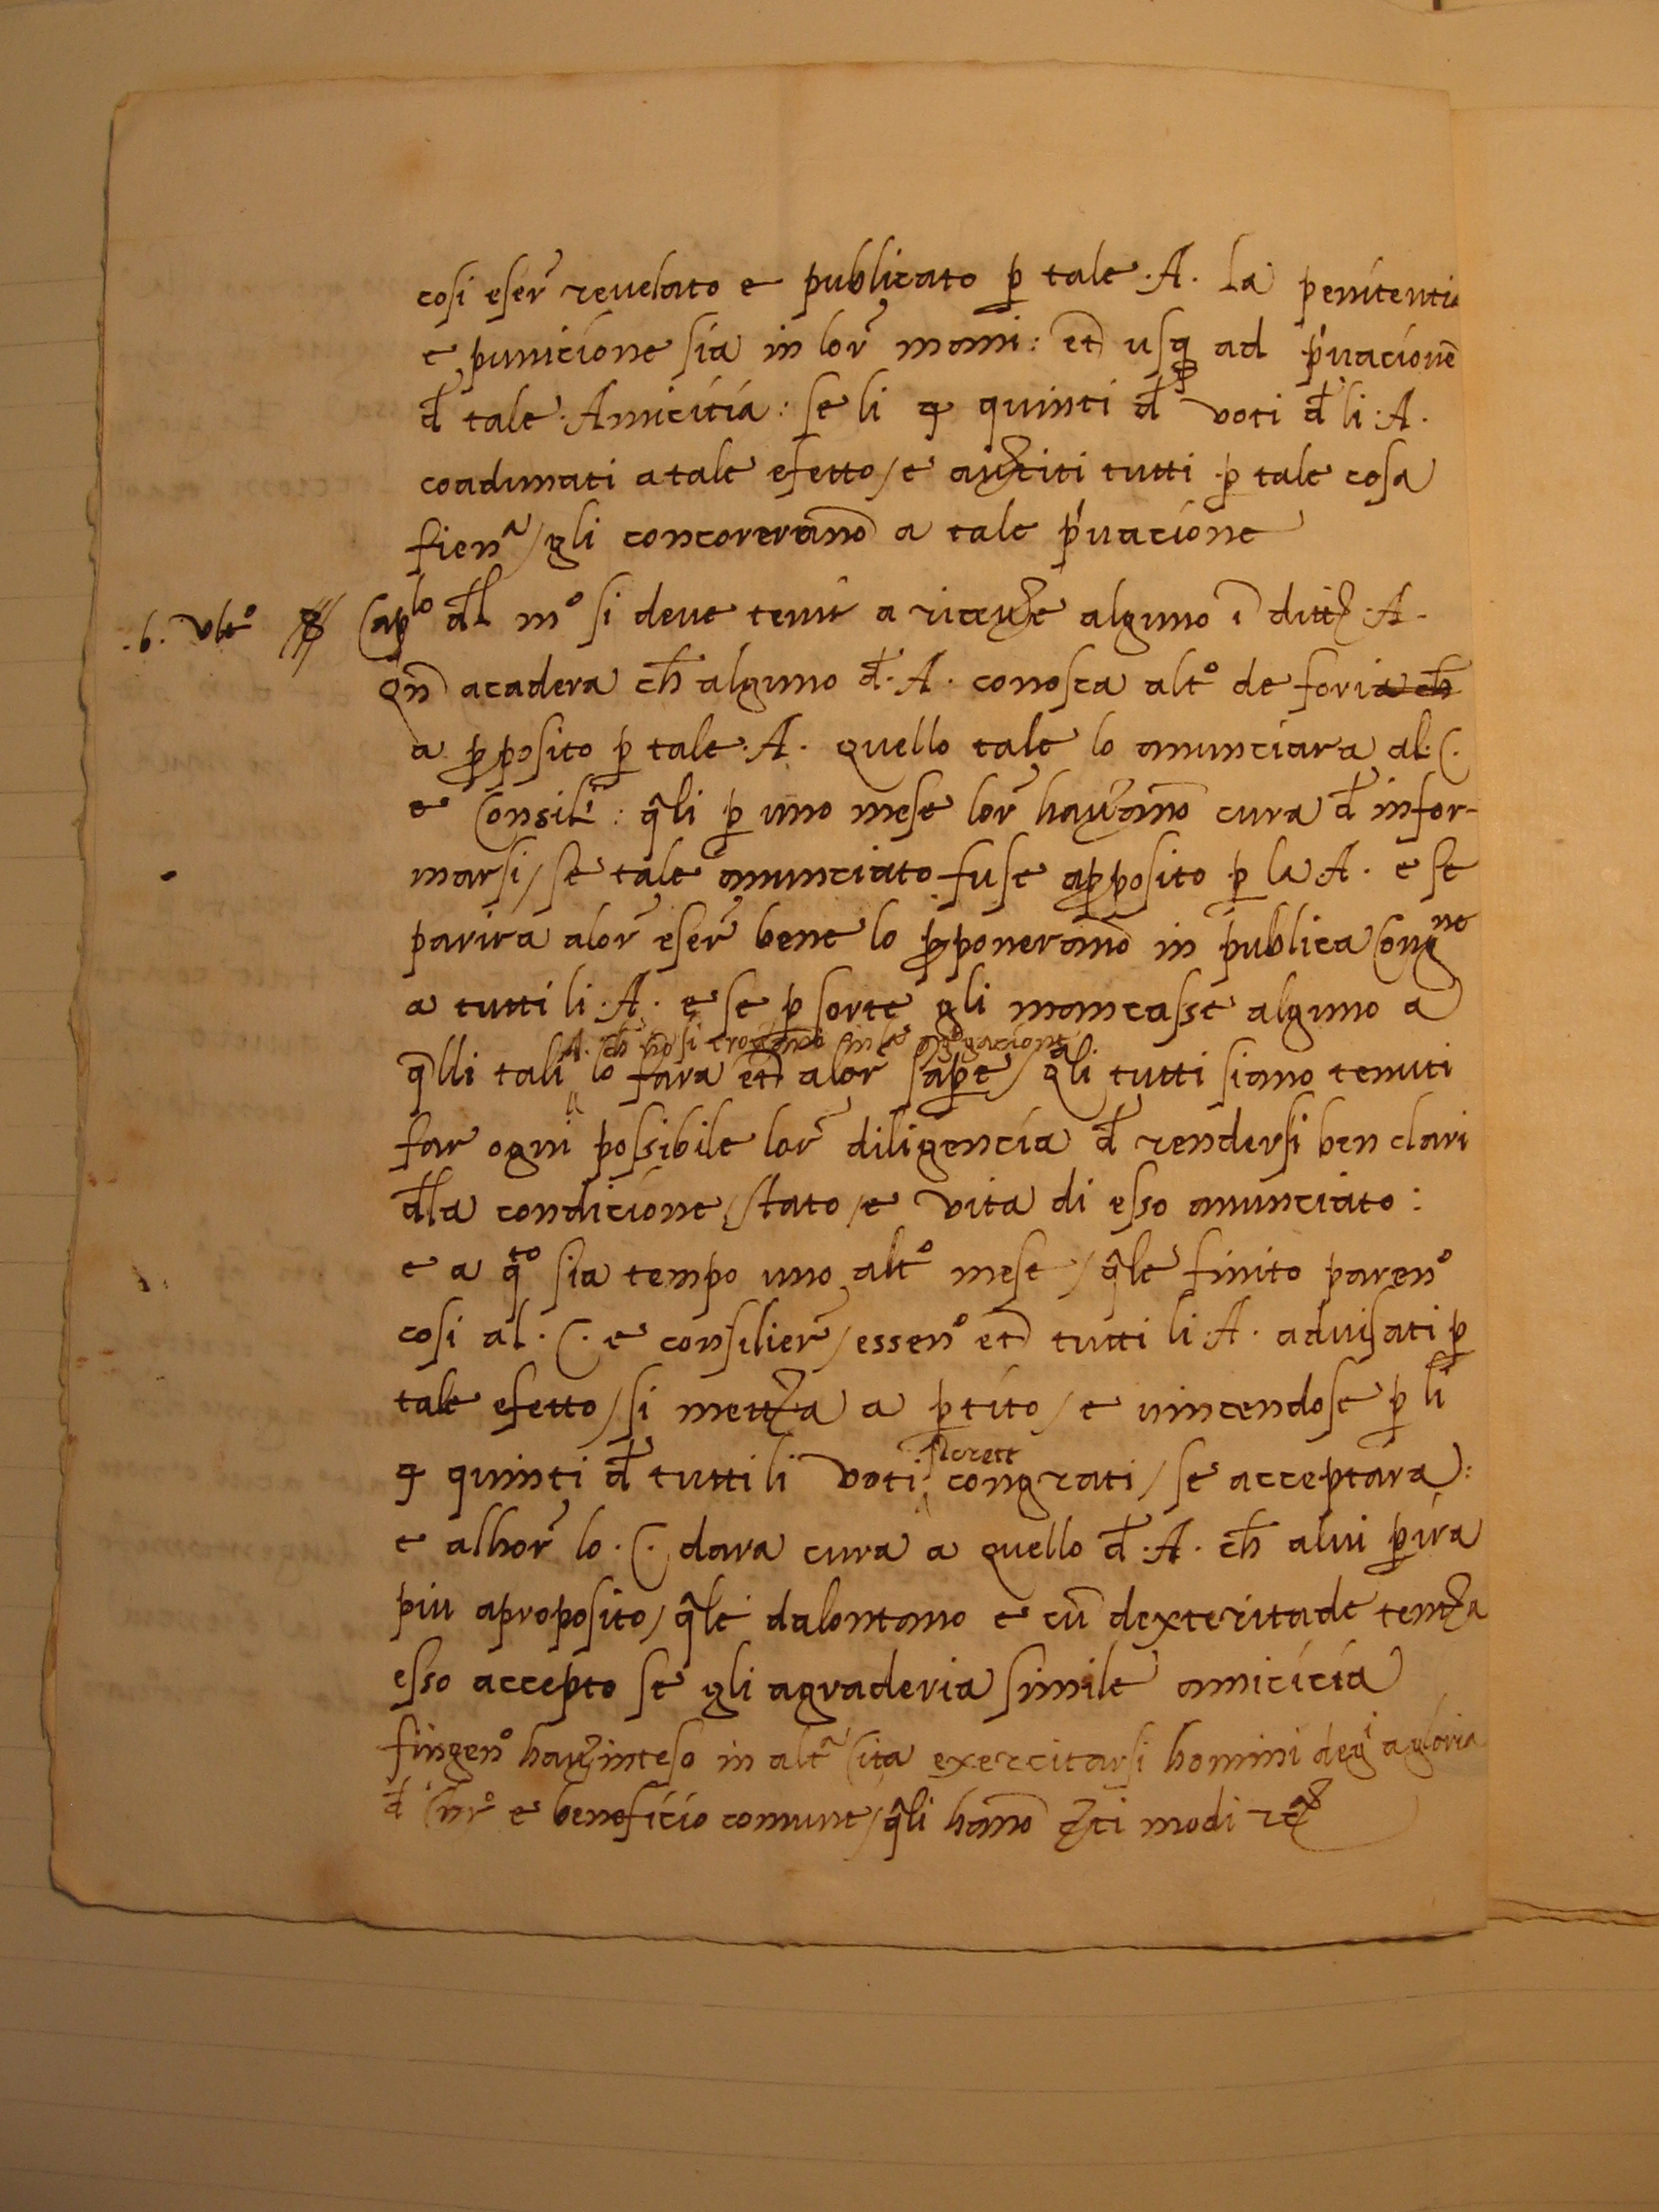 cosi eser̃ reuelato e publicato p̱ tale .A. la penitentia
e punicione sia in lor̃ mani: et usq̱ ad p'uacionẽ
đ tale Amicitia: se li 4 quinti đ voti đ li .A.
coadunati a tale efetto / e autiti tutti p̱ tale cosa
fienᵃ / gli concorerano a tale p'uacione
.6. vltº Caplo đl mº si deve tenir a riceuȝe alguno ĩ ditt .A.
qñ acadera ch̄ alguno đ .A. conosca altº de fori a ch̄
a p̱posito p̱ tale .A. quello tale lo anunciara al .C.
e Consil: q̃li p̱ uno mese lor̃ hauȝano cura đ infor-
marsi / se tale anunciato fuse ap̱posito p̱ la .A. e se
parira alor̃ eser̃ bene lo p̱poneranno in publica Congne
a tutti li .A. e se p̱ sorte gli mancasse alguno a
.A. ch̄ nõ si
q̃lli tali lo fara et alor sap̱e / q̃li tutti siano tenuti
far ogni possibile lor̃ diligencia đ rendersi ben clari
đla condicione / stato / e vita di esso anunciato:
e a q̃to sia tempo uno altº mese / q̃le finito parenº
cosi al .C. e consilier̃ / essenº et tutti li .A. aduisati p̱
tale efetto / si mettȝa a p̱tito / e uincendose p̱ li
4 quinti đ tutti li voti secrett congrati / se acceptara:
e alhor̃ lo .C. dara cura a quello đ .A. ch̄ a lui p̱ira
piu aproposito / q̃le dalontano e cũ dexteritade tentȝa
esso accepto se gli agraderia simile amicicia
fingenº hauȝ inteso in altᵃ Cita exercitarsi homini degi a gloria
đ Sñrº e beneficio comune / q̃li hano cȝti modi rcȝ